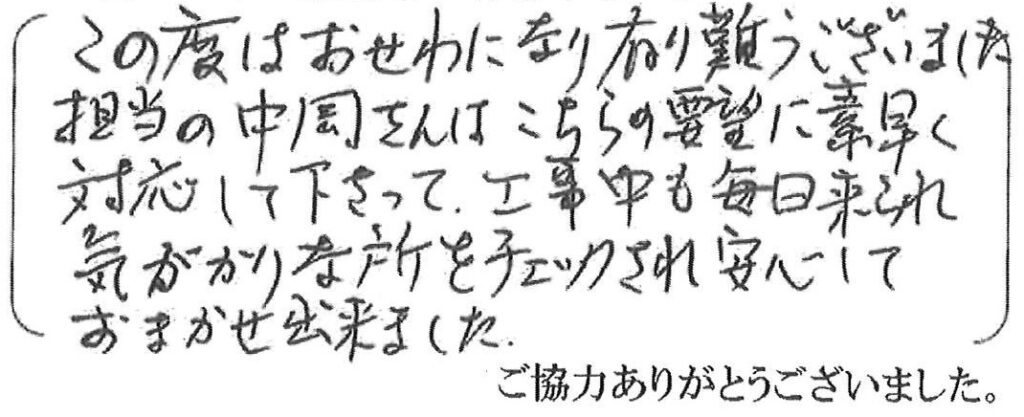 この度はおせわになり有り難うございました
担当の中岡さんはこちらの要望に素早く
対応して下さって、工事中も毎日来られ
気がかりな所をチェックされ安心して
おまかせ出来ました。
ご協力ありがとうございました。